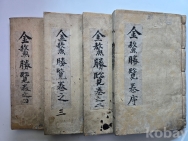 金鰲勝覽卷序
金鰲勝覽卷之
金鰲勝覽卷之三
金鰲勝覽卷之
kobay